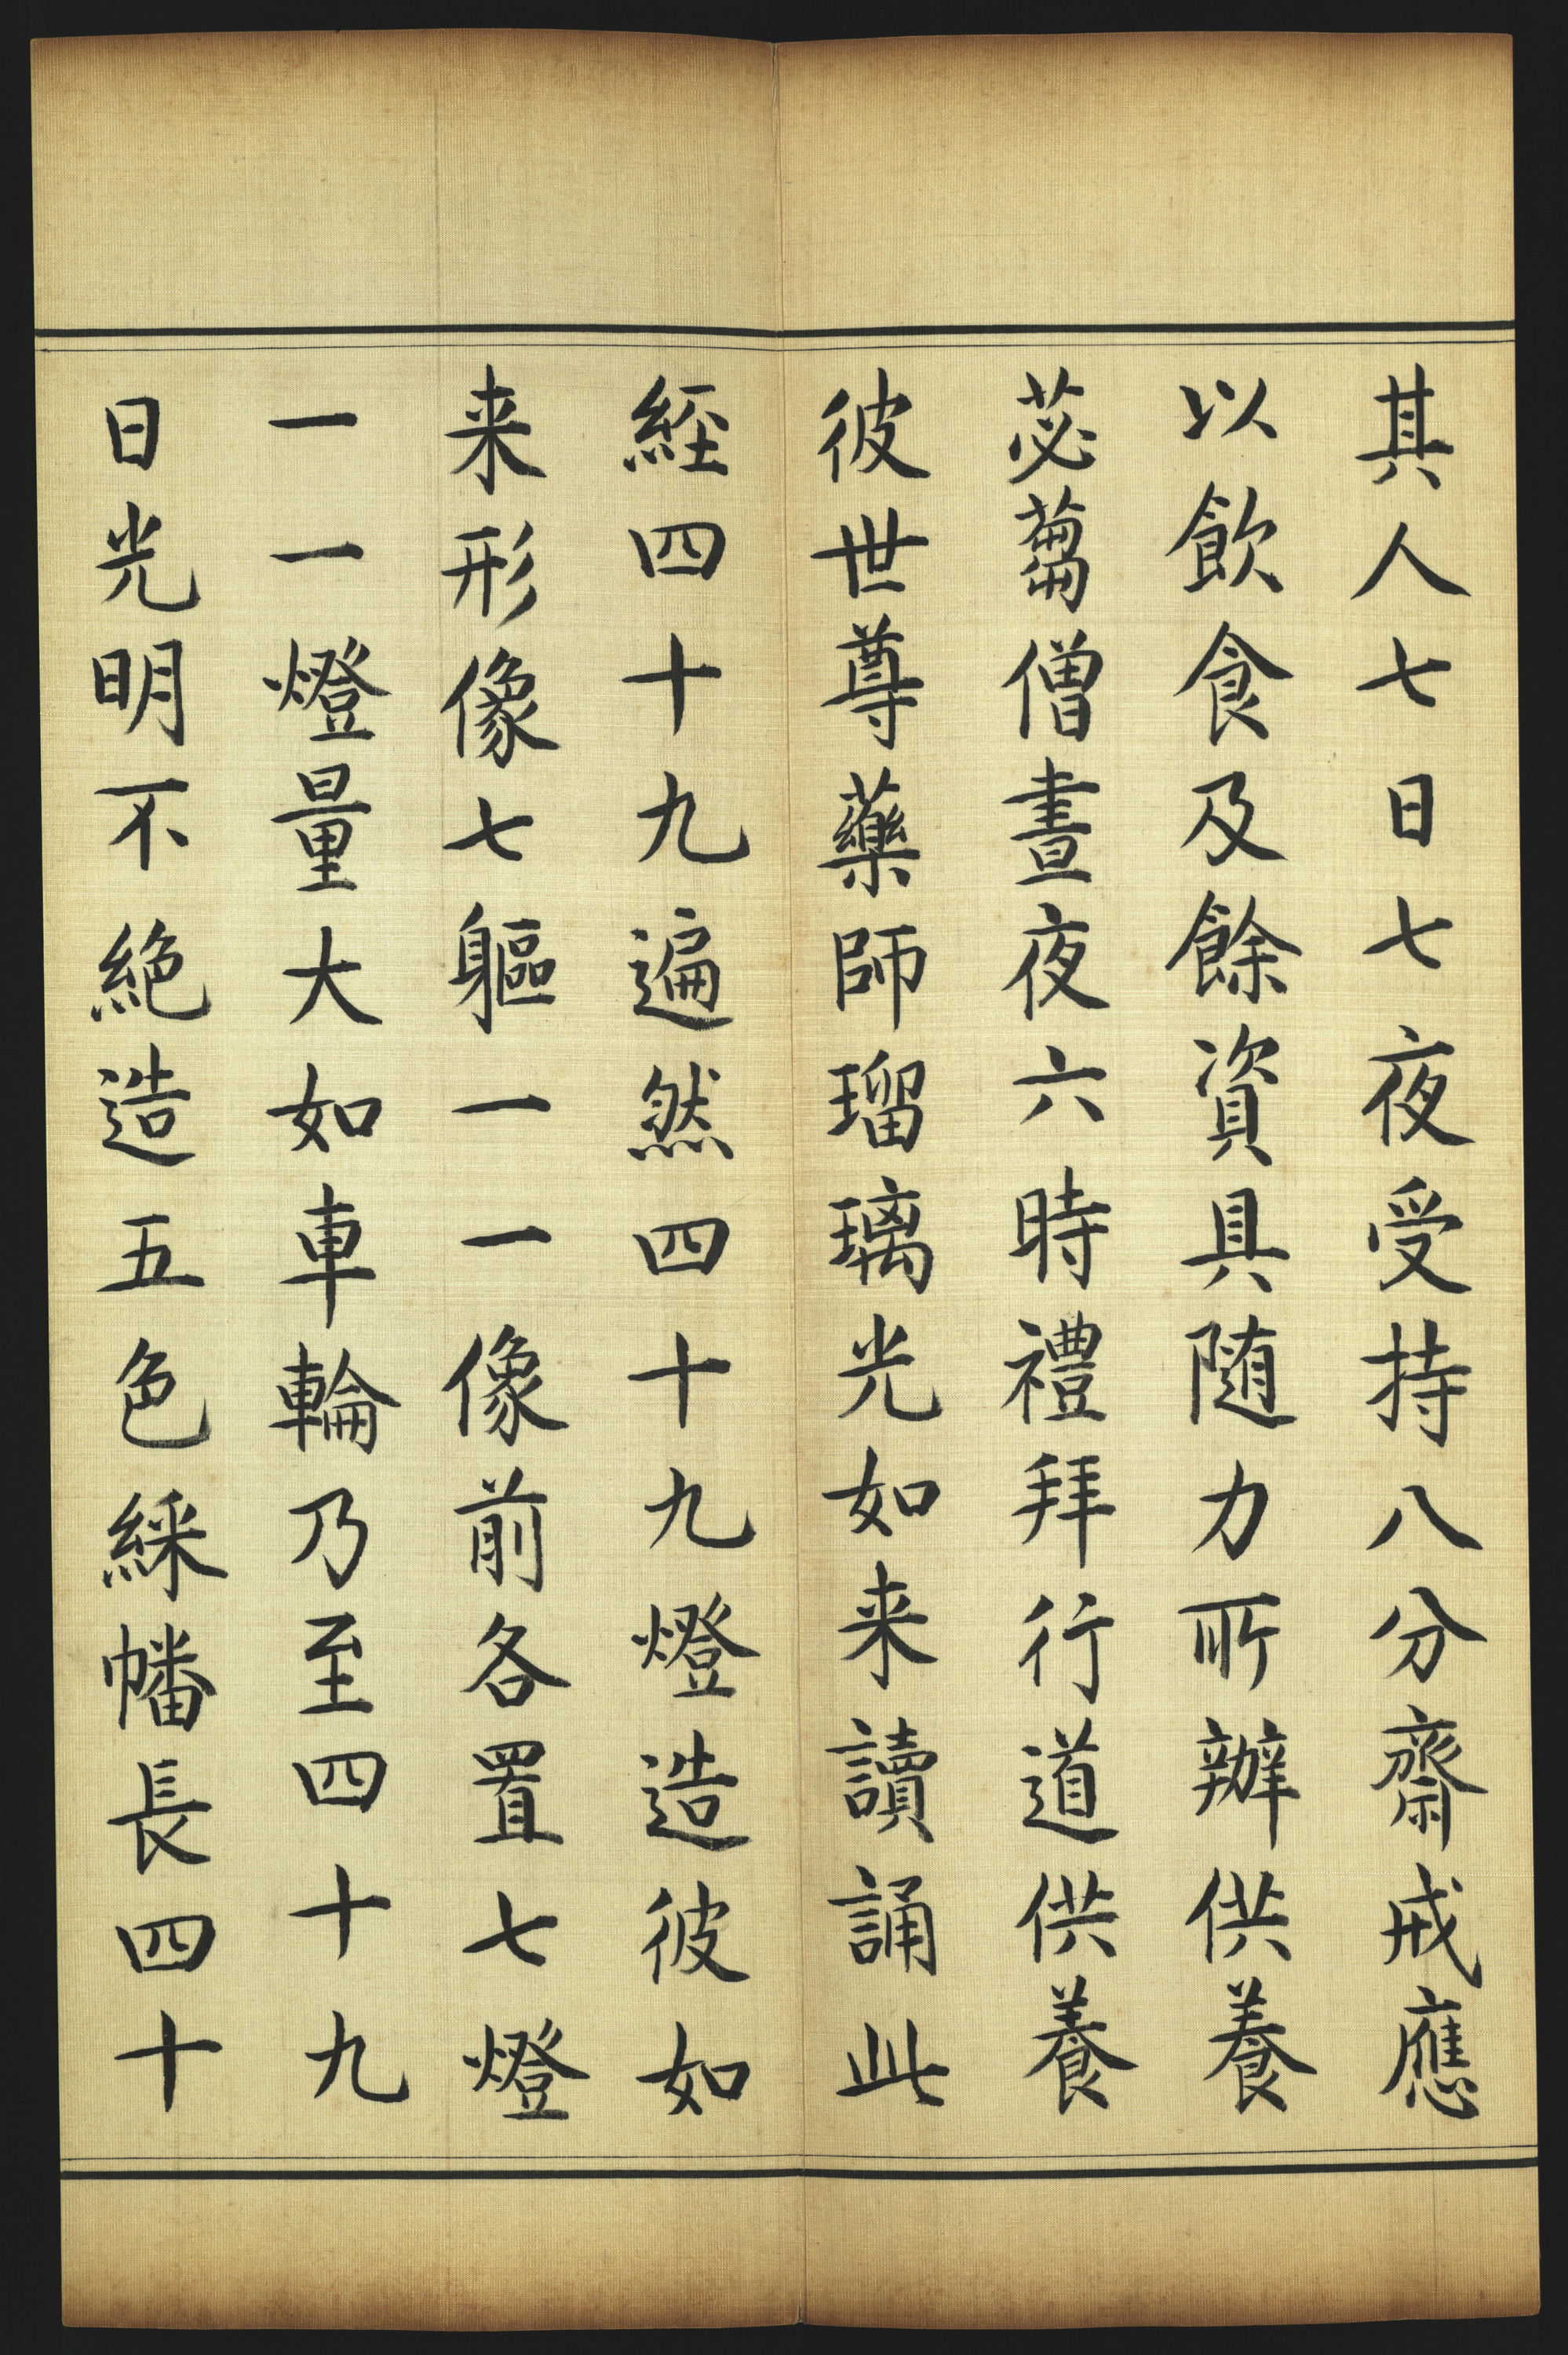 其人七日七夜受持八分齋戒應
以飲食及餘資具随力所辦供養
苾蒭僧晝夜六時禮拜行道供養
彼世尊藥師瑠璃光如来讀誦此
經四十九遍然四十九燈造彼如
来形像七軀一一像前各置七燈
一一燈量大如車輪乃至四十九
日光明不絕造五色綵幡長四十